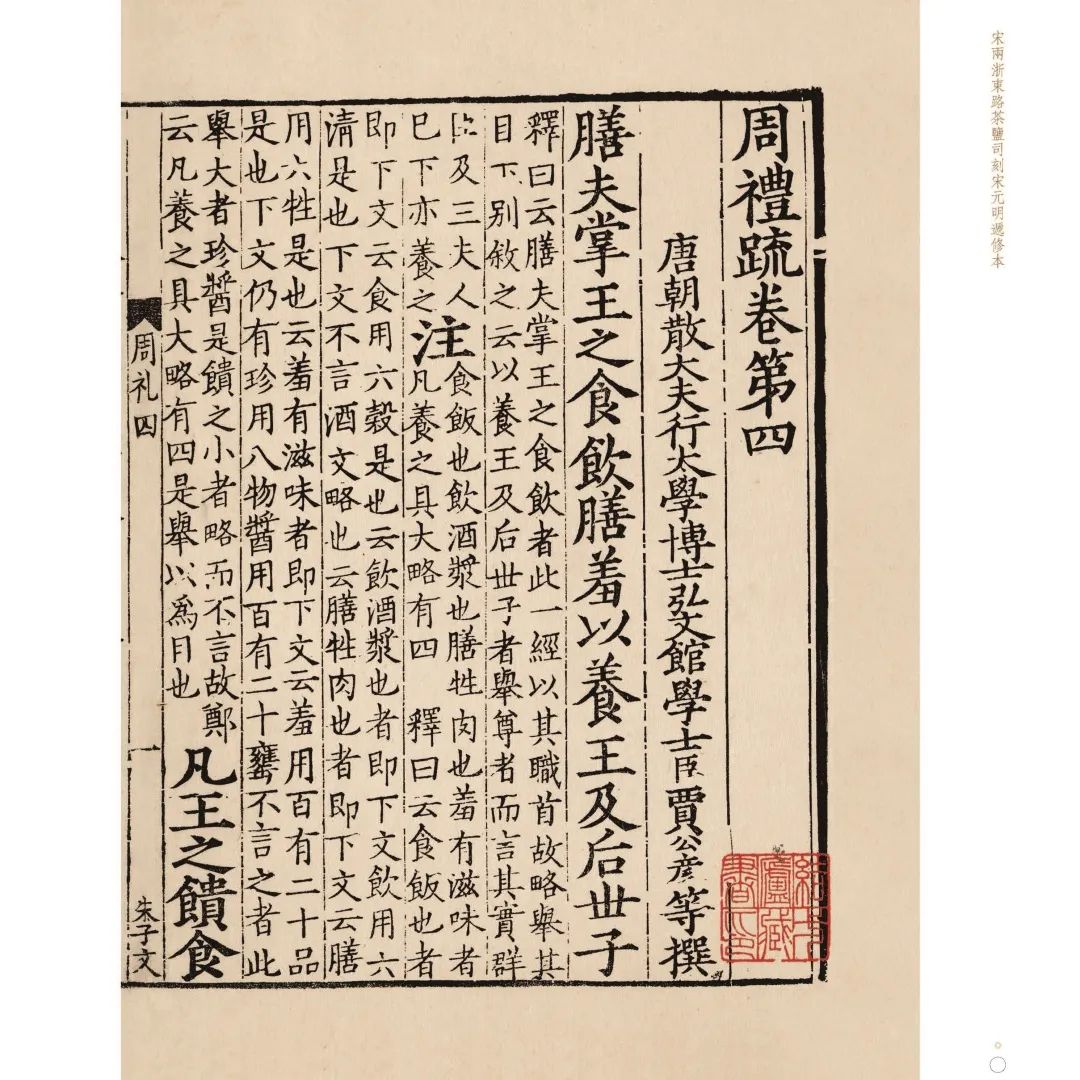 宋兩浙東路茶鹽司刻宋元明遞修本
周禮䟽卷第四
唐朝散大夫行太學博士弘文館學士臣賈公彦等撰
膳夫掌王之食飲膳羞以養王及后丗子
釋曰云膳夫掌王之食飲者此一經以其職首故略舉其
目下別敘之云以養王及后丗子者舉尊者而言其實群
臣及三夫人
巳下亦養之
注
食飯也飲酒漿也膳牲肉也羞有滋味者
凡養之具大略有四　釋曰云食飯也者
即下文云食用六穀是也云飲酒漿也者即下文飲用六
清是也下文不言酒文略也云膳牲肉也者即下文云膳
用六牲是也云羞有滋味者即下文云羞用百有二十品
是也下文仍有珍用八物醬用百有二十罋不言之者此
舉大者珍醬是饋之小者略而不言故鄭
云凡養之具大略有四是舉以爲目也
凡王之饋食
周礼四
一
朱子文